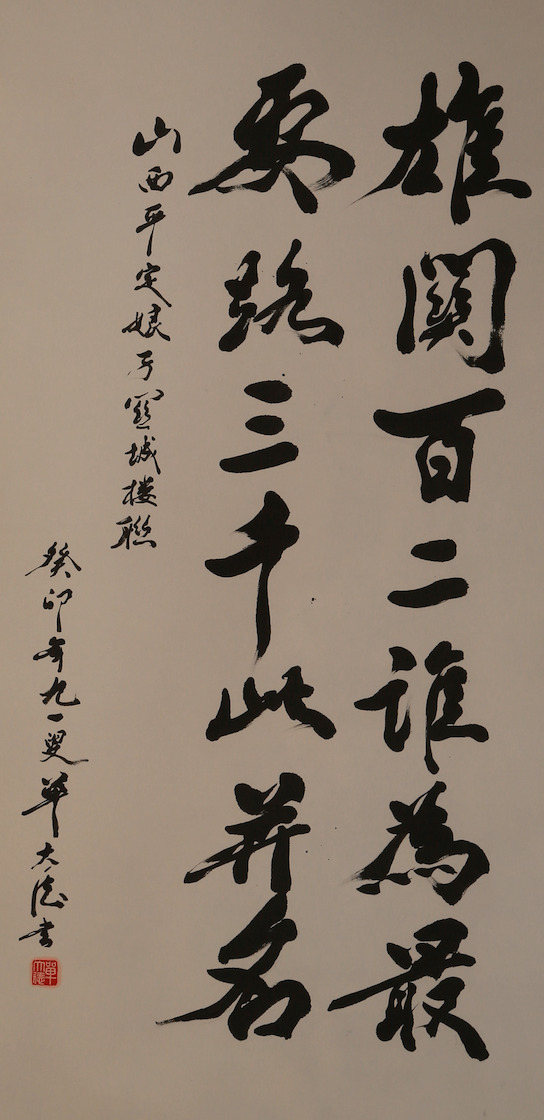 雄關百二誰為最
要路三千此并名
山西平定娘子關城楼聯
癸卯年九一叟单大德書
單大德